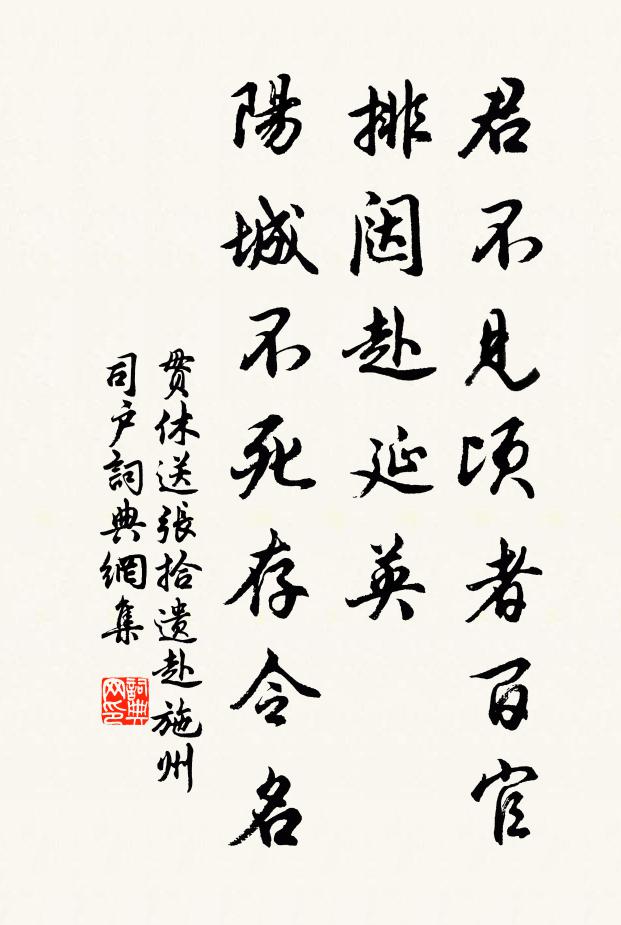 君不見頃者百官
排闥赴延英
陽城不死存令名
貫休送張拾遺赴施州
司戶詞典網集
詞典网印